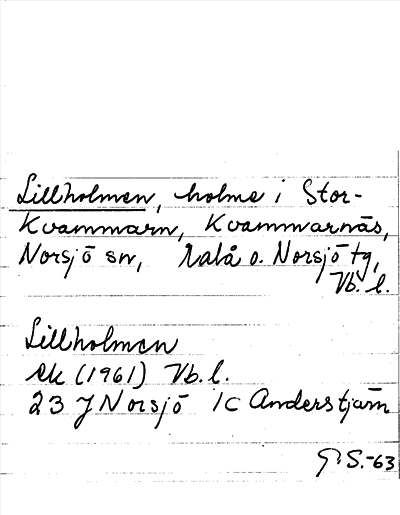 Lillholmen, holme i Stor-
Kvammarn, Kvammarnäs,
Norsjö sn, Malå o. Norsjö tg,
Vb. l.
Lillholmen
ek (1961) Vb. l.
23 J Norsjö 1c Anderstjärn
G.S.-63